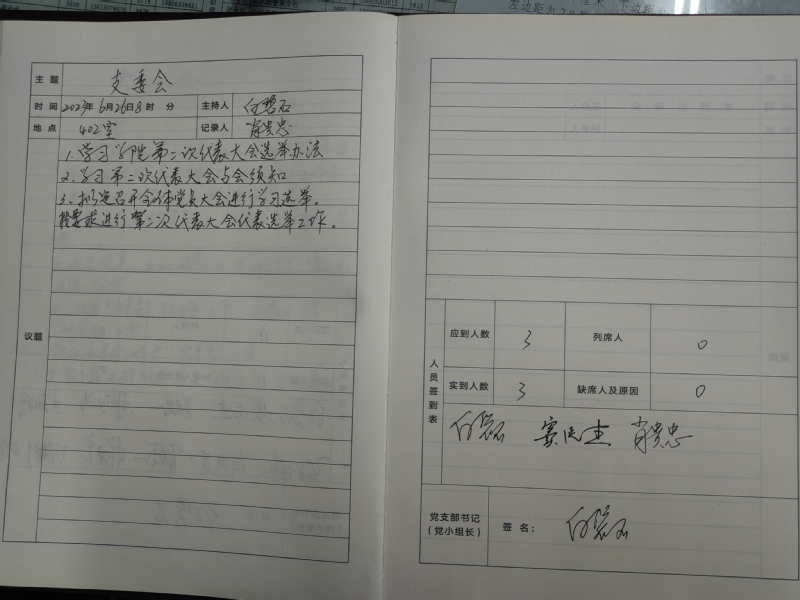 左边距为28
主题 支委会
时间 2023年6月26日8时 分 主持人 白碧石
地点 402室 记录人 肖贵忠
议题
1.学习学院第二次代表大会选举办法
2.学习第二次代表大会与会须知
3.拟定召开全体党员大会进行学习选举。
按要求进行第二次代表大会代表选举工作。
人员签到表
应到人数 3 列席人 0
实到人数 3 缺席人及原因 0
肖贵忠
党支部书记
(党小组长) 签名: